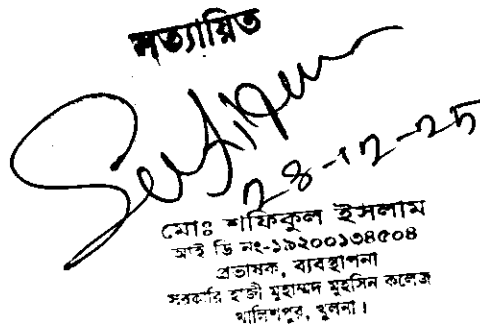 সত্যায়িত
28-12-25
মোঃ শফিকুল ইসলাম
আই ডি নং-১৯২০০১৩৪৫০৪
প্রভাষক, ব্যবস্থাপনা
সরকারি হাজী মুহাম্মদ মুহসিন কলেজ
খালিশপুর, খুলনা।